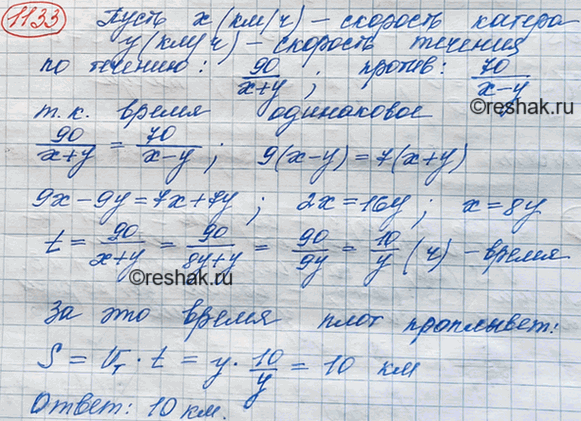 1133 Пусть x (км/ч) – скорость катера
y (км/ч) – скорость течения
по течению: 90/(x+y); против: 70/(x-y)
©reshak.ru
т.к. время одинаковое
90/(x+y) = 70/(x-y); 9(x-y)=7(x+y)
9x-9y=7x+7y; 2x=16y; x=8y
t = 90/(x+y) = 90/(8y+y) = 90/9y = 10/y (ч) – время
©reshak.ru
За это время плот проплывет:
S = Vт · t = y · 10/y = 10 км
©reshak.ru
Ответ: 10 км.